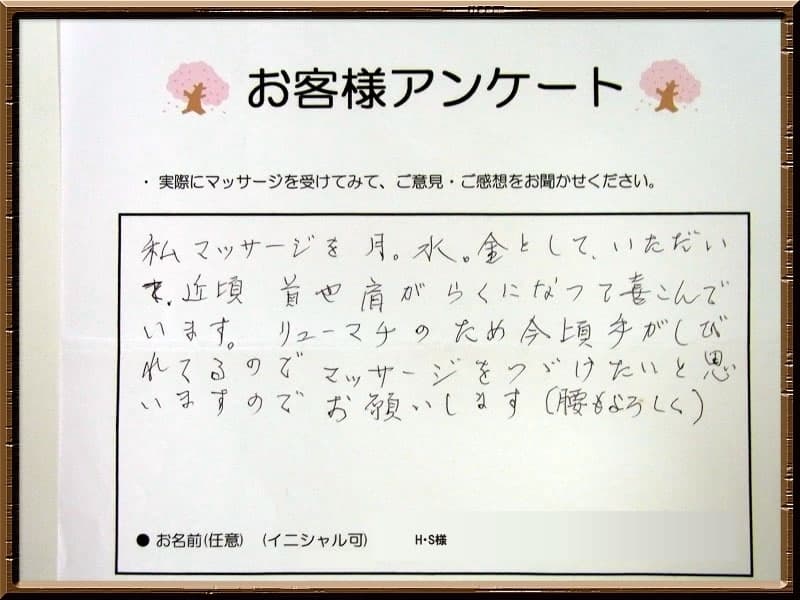 お客様アンケート
・実際にマッサージを受けてみて、ご意見・ご感想をお聞かせください。
私マッサージを月。水。金として、いただい
て、近頃 首や肩がらくになって喜こんで
います。リューマチのため今頃手がしび
れてるのでマッサージをつづけたいと思
いますのでお願いします(腰もよろしく)
●お名前(任意) (イニシャル可) H・S様